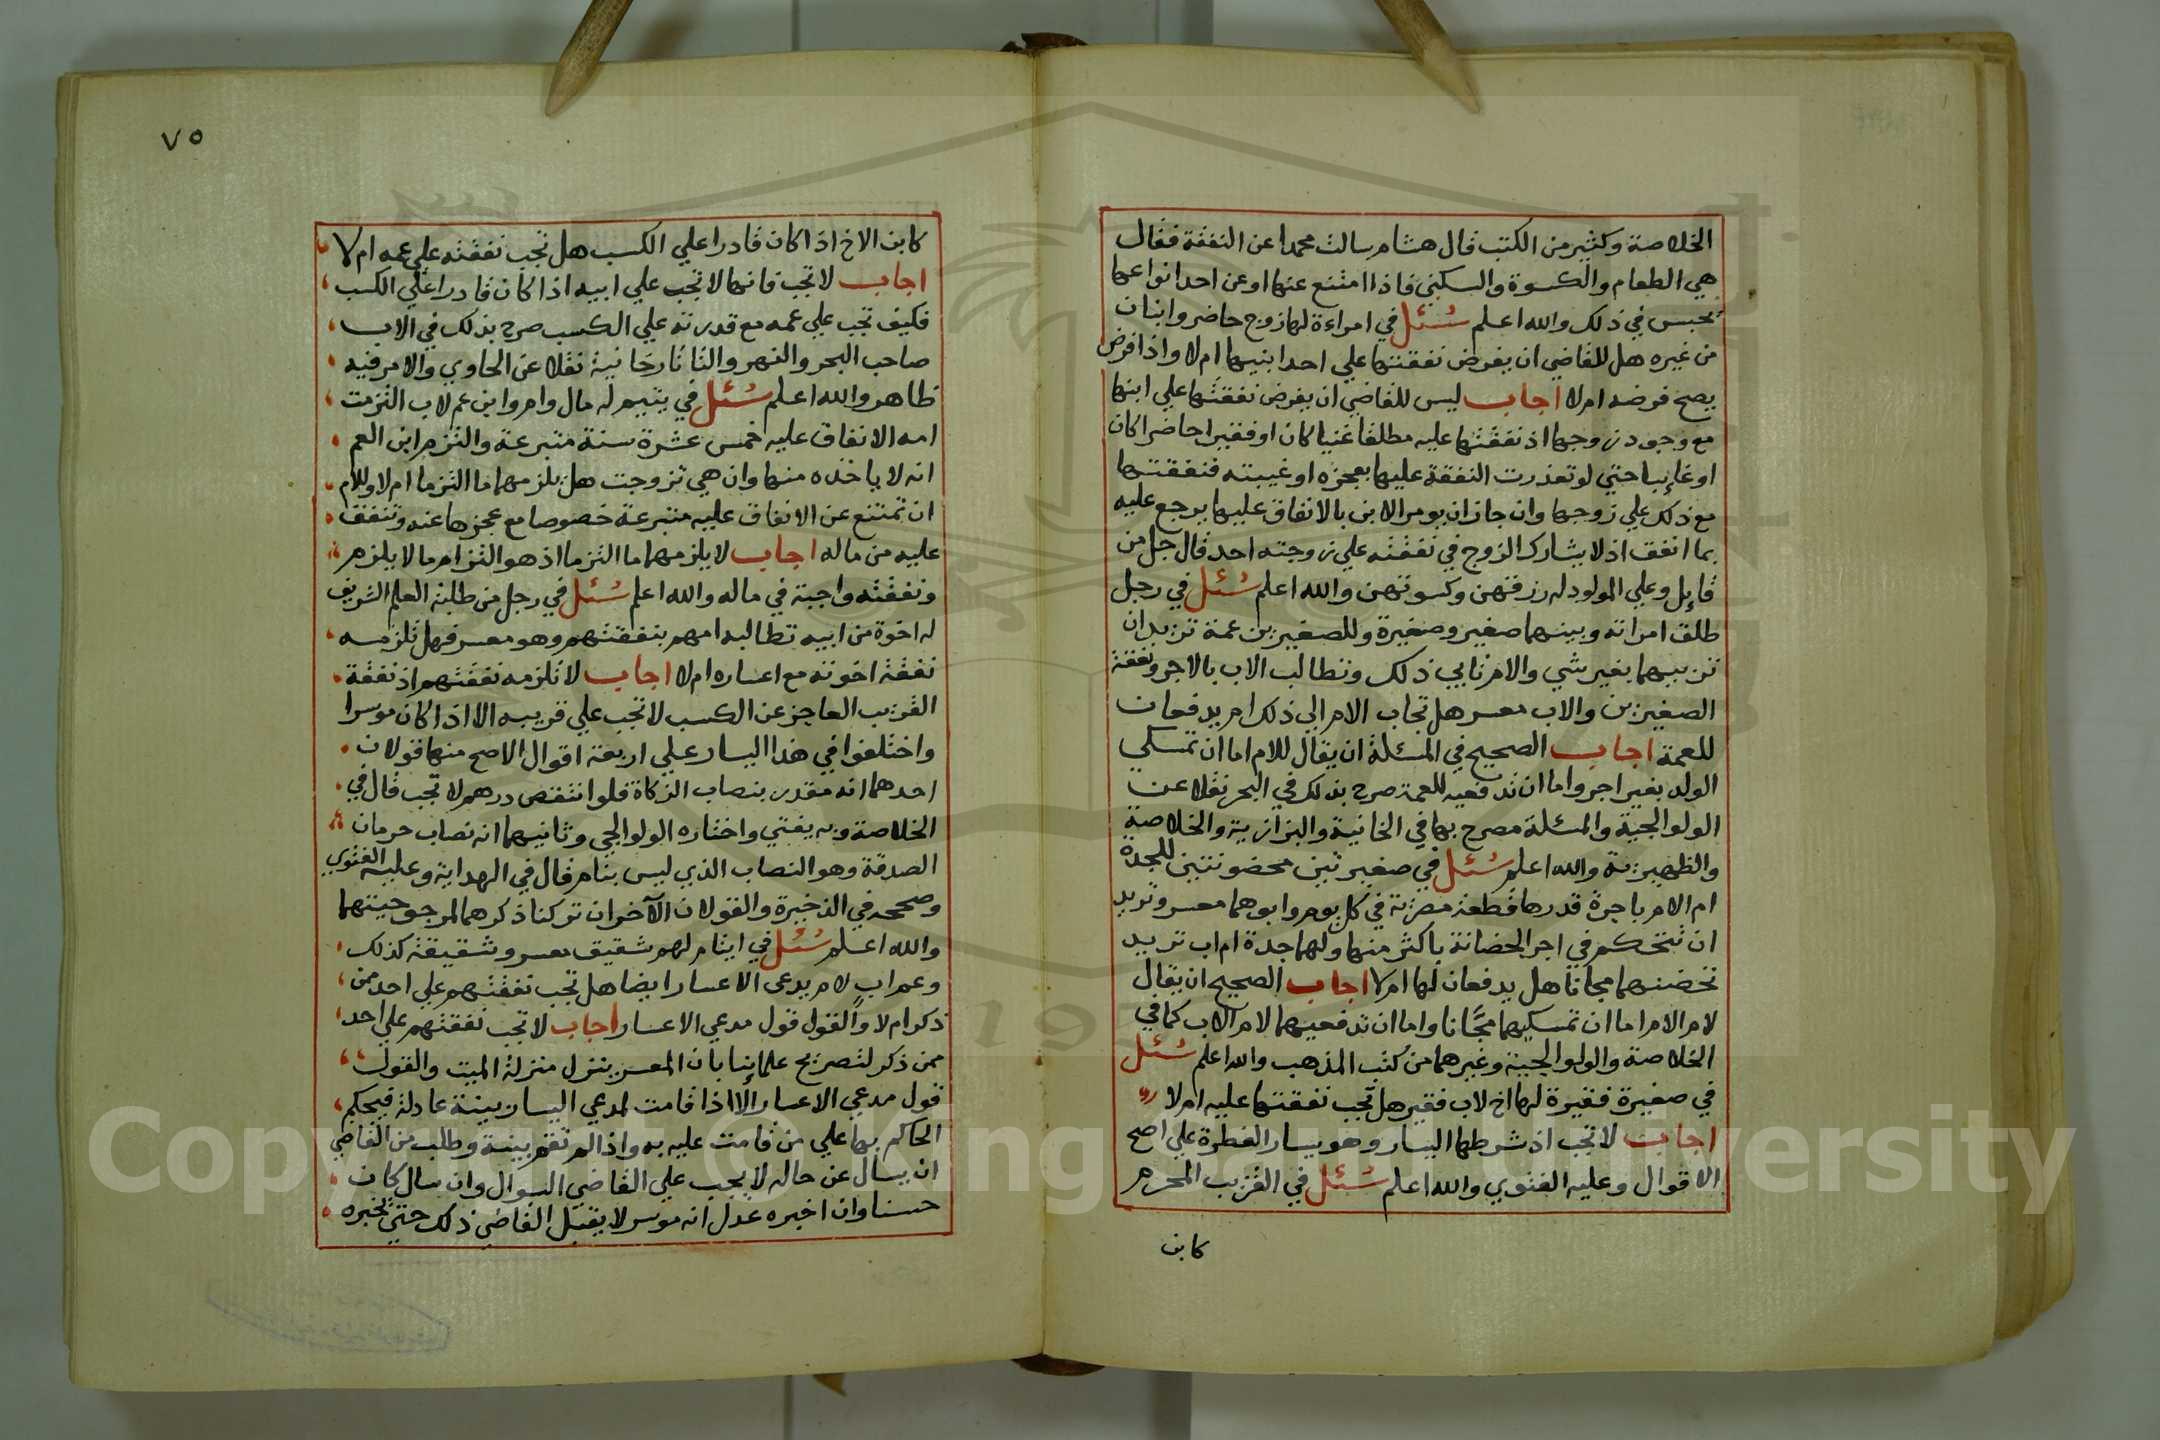 الخلاصة وكثير من الكتب قال هشام سالت محمدا عن النفقة فقال
هي الطعام والكسوة والسكني فاذا امتنع عنها او عن احد انواعها
يحبس في ذلك والله اعلم سئل في امراءة لها زوج حاضر وابنان
من غيره هل للقاضي ان يفرض نفقتها علي احد ابنيها ام لا واذا فرض
يصح فرضه ام لا اجاب ليس للقاضي ان يفرض نفقتها علي ابنها
مع وجود زوجها اذ نفقتها عليه مطلقا غنيا كان او فقيرا حاضرا كان
او غايبا حتي لو تعذرت النفقة عليها بعجزه او غيبته فنفقتها
مع ذلك علي زوجها وان جاز ان يومر الابن بالانفاق عليها يرجع عليه
بما انفق اذ لا يشارك الزوج في نفقته علي زوجته احد قال جل من
قايل وعلي المولود له رزقهن وكسوتهن والله اعلم سئل في رجل
طلق امراته وبينهما صغير وصغيرة وللصغيرين عمة تريد ان
تربيهما بغير شي والام تابي ذلك وتطالب الاب بالاجر ونفقة
الصغيرين والاب معسر هل تجاب الام الي ذلك ام يدفعان
للعمة اجاب الصحيح في المسئلة ان يقال للام اما ان تمسكي
الولد بغير اجر واما ان تدفعيه للعمة صرح بذلك في البحر نقلا عن
الولوالجية والمسئلة مصرح بها في الخانية والبزازية والخلاصة
والظهيرية والله اعلم سئل في صغيرتين محضونتين للجدة
ام الام باجرة قدرها قطعة مصرية في كل يوم وابوهما معسر وتريد
ان تتحكم في اجر الحضانة باكثر منها ولها جدة ام اب تريد
تحضنهما مجانا هل يدفعان لها ام لا اجاب الصحيح ان يقال
لام الام اما ان تمسكيهما مجانا واما ان تدفعيهما لام الاب كما في
الخلاصة والولوالجية وغيرهما من كتب المذهب والله اعلم سئل
في صغيرة فقيرة لها اخ لاب فقير هل تجب نفقتها عليه ام لا
اجاب لا تجب اذ شرطها اليسار وهو يسار الفطرة علي اصح
الاقوال وعليه الفتوي والله اعلم سئل في القريب المحرم
كابن
٧٥
كابن الاخ اذا كان قادرا علي الكسب هل تجب نفقته علي عمه ام لا
اجاب لا تجب فانها لا تجب علي ابيه اذا كان قادرا علي الكسب
فكيف تجب علي عمه مع قدرته علي الكسب صرح بذلك في الاب
صاحب البحر والنهر والتاتارخانية نقلا عن الحاوي والامر فيه
ظاهر والله اعلم سئل في يتيم له مال وام وابن عم لاب التزمت
امه الانفاق عليه خمس عشرة سنة متبرعة والتزم ابن العم
انه لا ياخذه منها وان هي تزوجت هل يلزمهما ما التزما ام لا وللام
ان تمتنع عن الانفاق عليه متبرعة خصوصا مع عجزها عنه وتنفق
عليه من ماله اجاب لا يلزمهما ما التزما اذ هو التزام ما لا يلزم
ونفقته واجبة في ماله والله اعلم سئل في رجل من طلبة العلم الشريف
له اخوة من ابيه تطالبه امهم بنفقتهم وهو معسر فهل تلزمه
نفقة اخوته مع اعساره ام لا اجاب لا تلزمه نفقتهم اذ نفقة
القريب العاجز عن الكسب لا تجب علي قريبه الا اذا كان موسرا
واختلفوا في هذا اليسار علي اربعة اقوال الاصح منها قولان
احدهما انه مقدر بنصاب الزكاة فلو انتقص درهم لا تجب قال في
الخلاصة وبه يفتي واختاره الولوالجي وثانيهما انه نصاب حرمان
الصدقة وهو النصاب الذي ليس بنام قال في الهداية وعليه الفتوي
وصححه في الذخيرة والقولان الآخران تركنا ذكرهما لمرجوحيتهما
والله اعلم سئل في ايتام لهم شقيق معسر وشقيقة كذلك
وعم اب لام يدعي الاعسار ايضا هل تجب نفقتهم علي احد من
ذكر ام لا والقول قول مدعي الاعسار اجاب لا تجب نفقتهم علي احد
ممن ذكر لتصريح علماينا بان المعسر ينزل منزلة الميت والقول
قول مدعي الاعسار إلا اذا قامت لمدعي اليسار بينة عادلة فيحكم
الحاكم بها علي من قامت عليه به واذا لم تقم بينة وطلب من القاضي
ان يسال عن حاله لا يجب علي القاضي السوال وان سال كان
حسنا وان اخبره عدل انه موسر لا يقبل القاضي ذلك حتي يخبره
Copyright © King Saud University